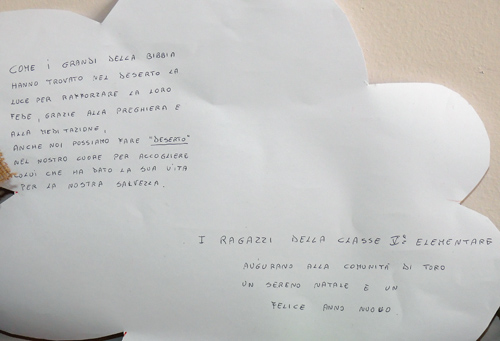 COME I GRANDI DELLA BIBBIA
HANNO TROVATO NEL DESERTO LA
LUCE PER RAFFORZARE LA LORO
FEDE, GRAZIE ALLA PREGHIERA E
ALLA MEDITAZIONE,
ANCHE NOI POSSIAMO FARE "DESERTO"
NEL NOSTRO CUORE PER ACCOGLIERE
COLUI CHE HA DATO LA SUA VITA
PER LA NOSTRA SALVEZZA.
I RAGAZZI DELLA CLASSE Vª ELEMENTARE
AUGURANO ALLA COMUNITÀ DI TORO
UN SERENO NATALE E UN
FELICE ANNO NUOVO.